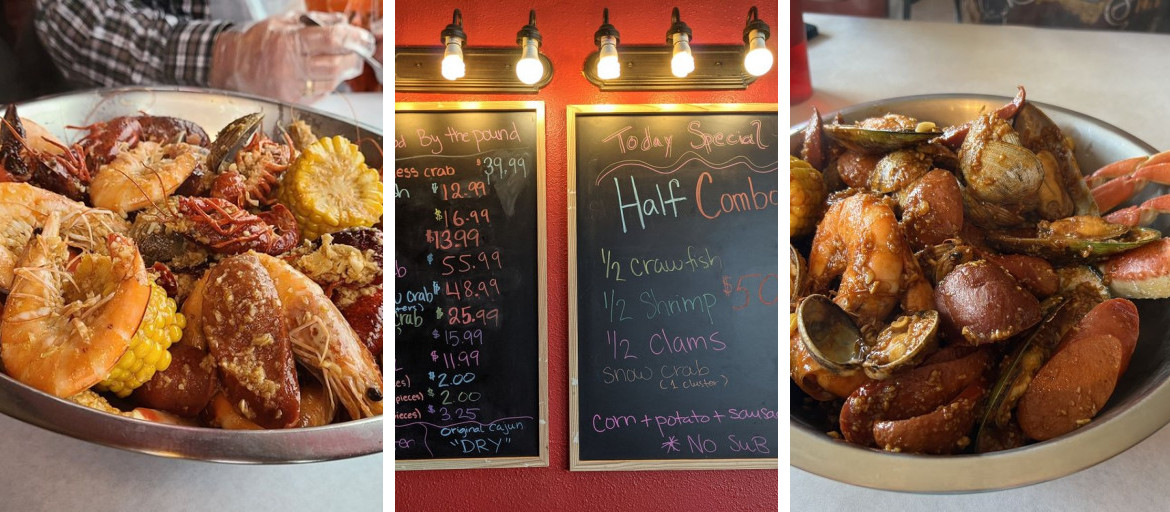 By the pound
ess crab $39.99
h $12.99
$16.99
$13.99
b $55.99
w crab $48.99
crab $25.99
$15.99
$11.99
es) $2.00
pieces) $2.00
pieces) $3.25
er
Original Cajun
"DRY"
Today Special
Half Combo
1/2 crawfish
1/2 Shrimp
$50
1/2 Clams
snow crab
(1 cluster)
Corn + potato + sausa
* No SUB